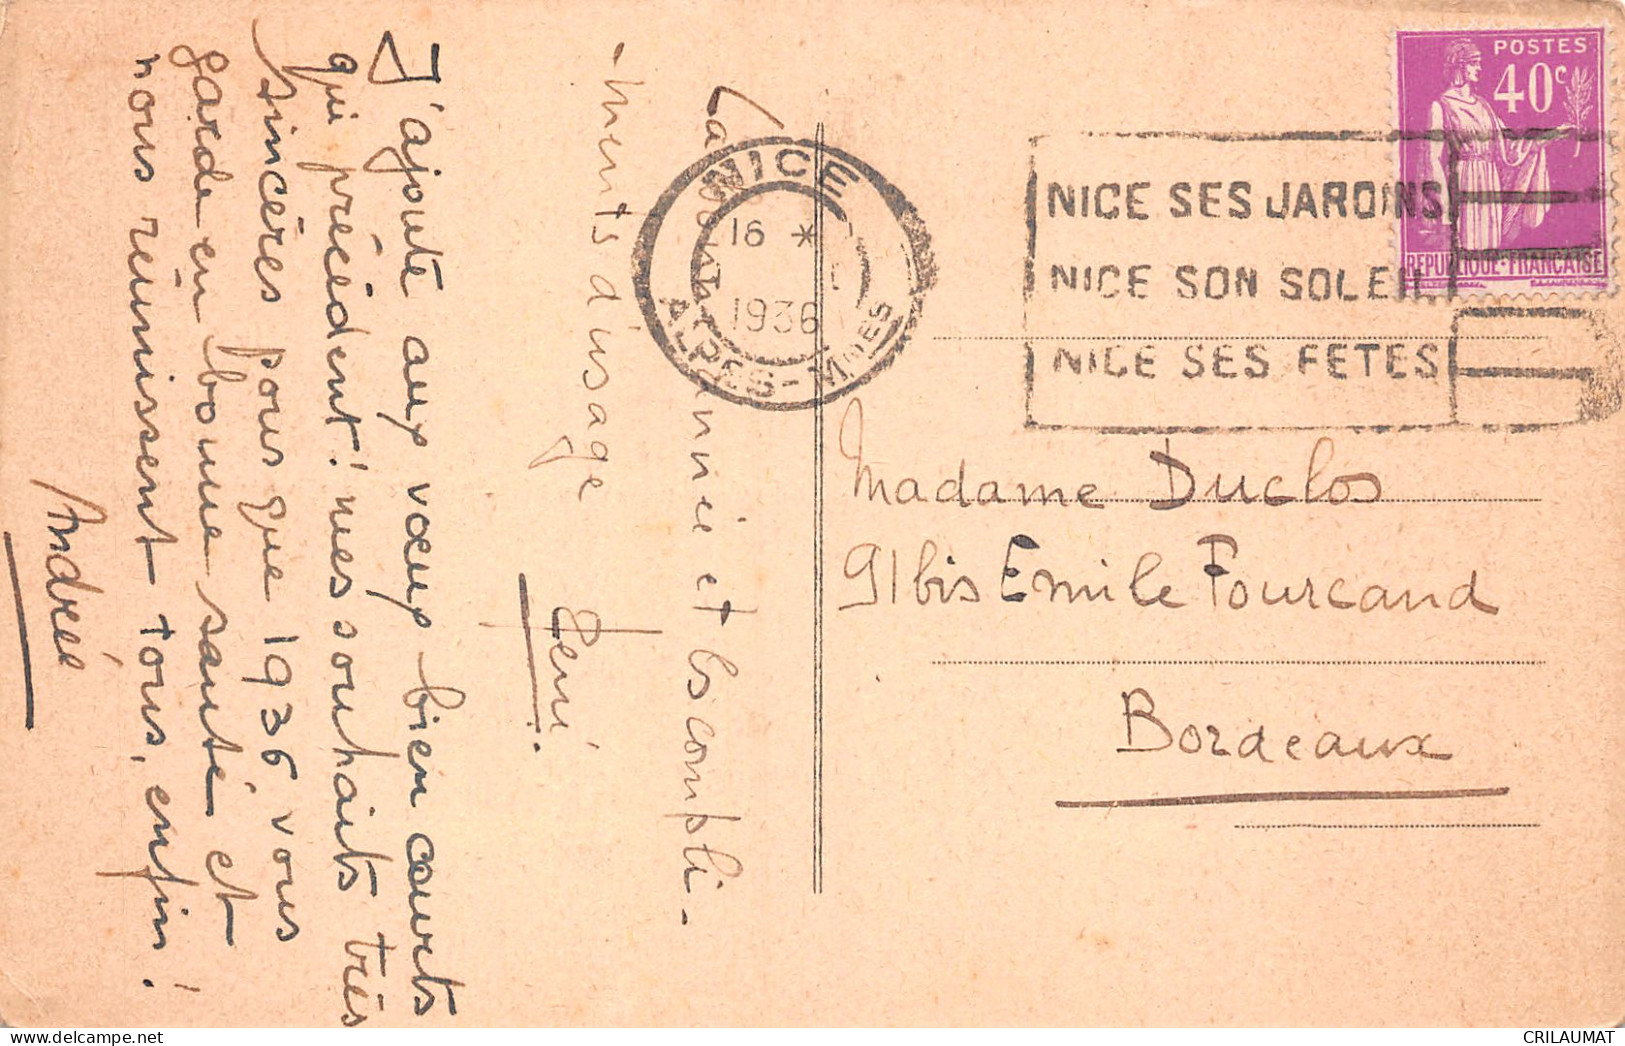 La bonne année et les compli-
-ments d'usage
René
J'ajoute aux vœux bien courts
qui précèdent! mes souhaits très
sincères pour que 1936, vous
garde en bonne santé et
nous réunissent tous, enfin!
Andrée
NICE
16 *
1936
ALPES-Mmes
NICE SES JARDINS
NICE SON SOLEIL
NICE SES FETES
POSTES
40c
REPUBLIQUE·FRANCAISE
Madame Duclos
91bis Emile Fourcand
Bordeaux
CRILAUMAT